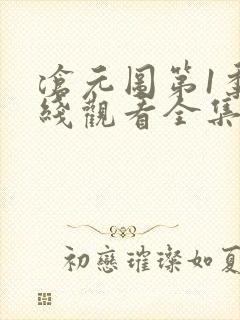 滄元圖第1季
綫觀看全集
初戀璀璨如夏